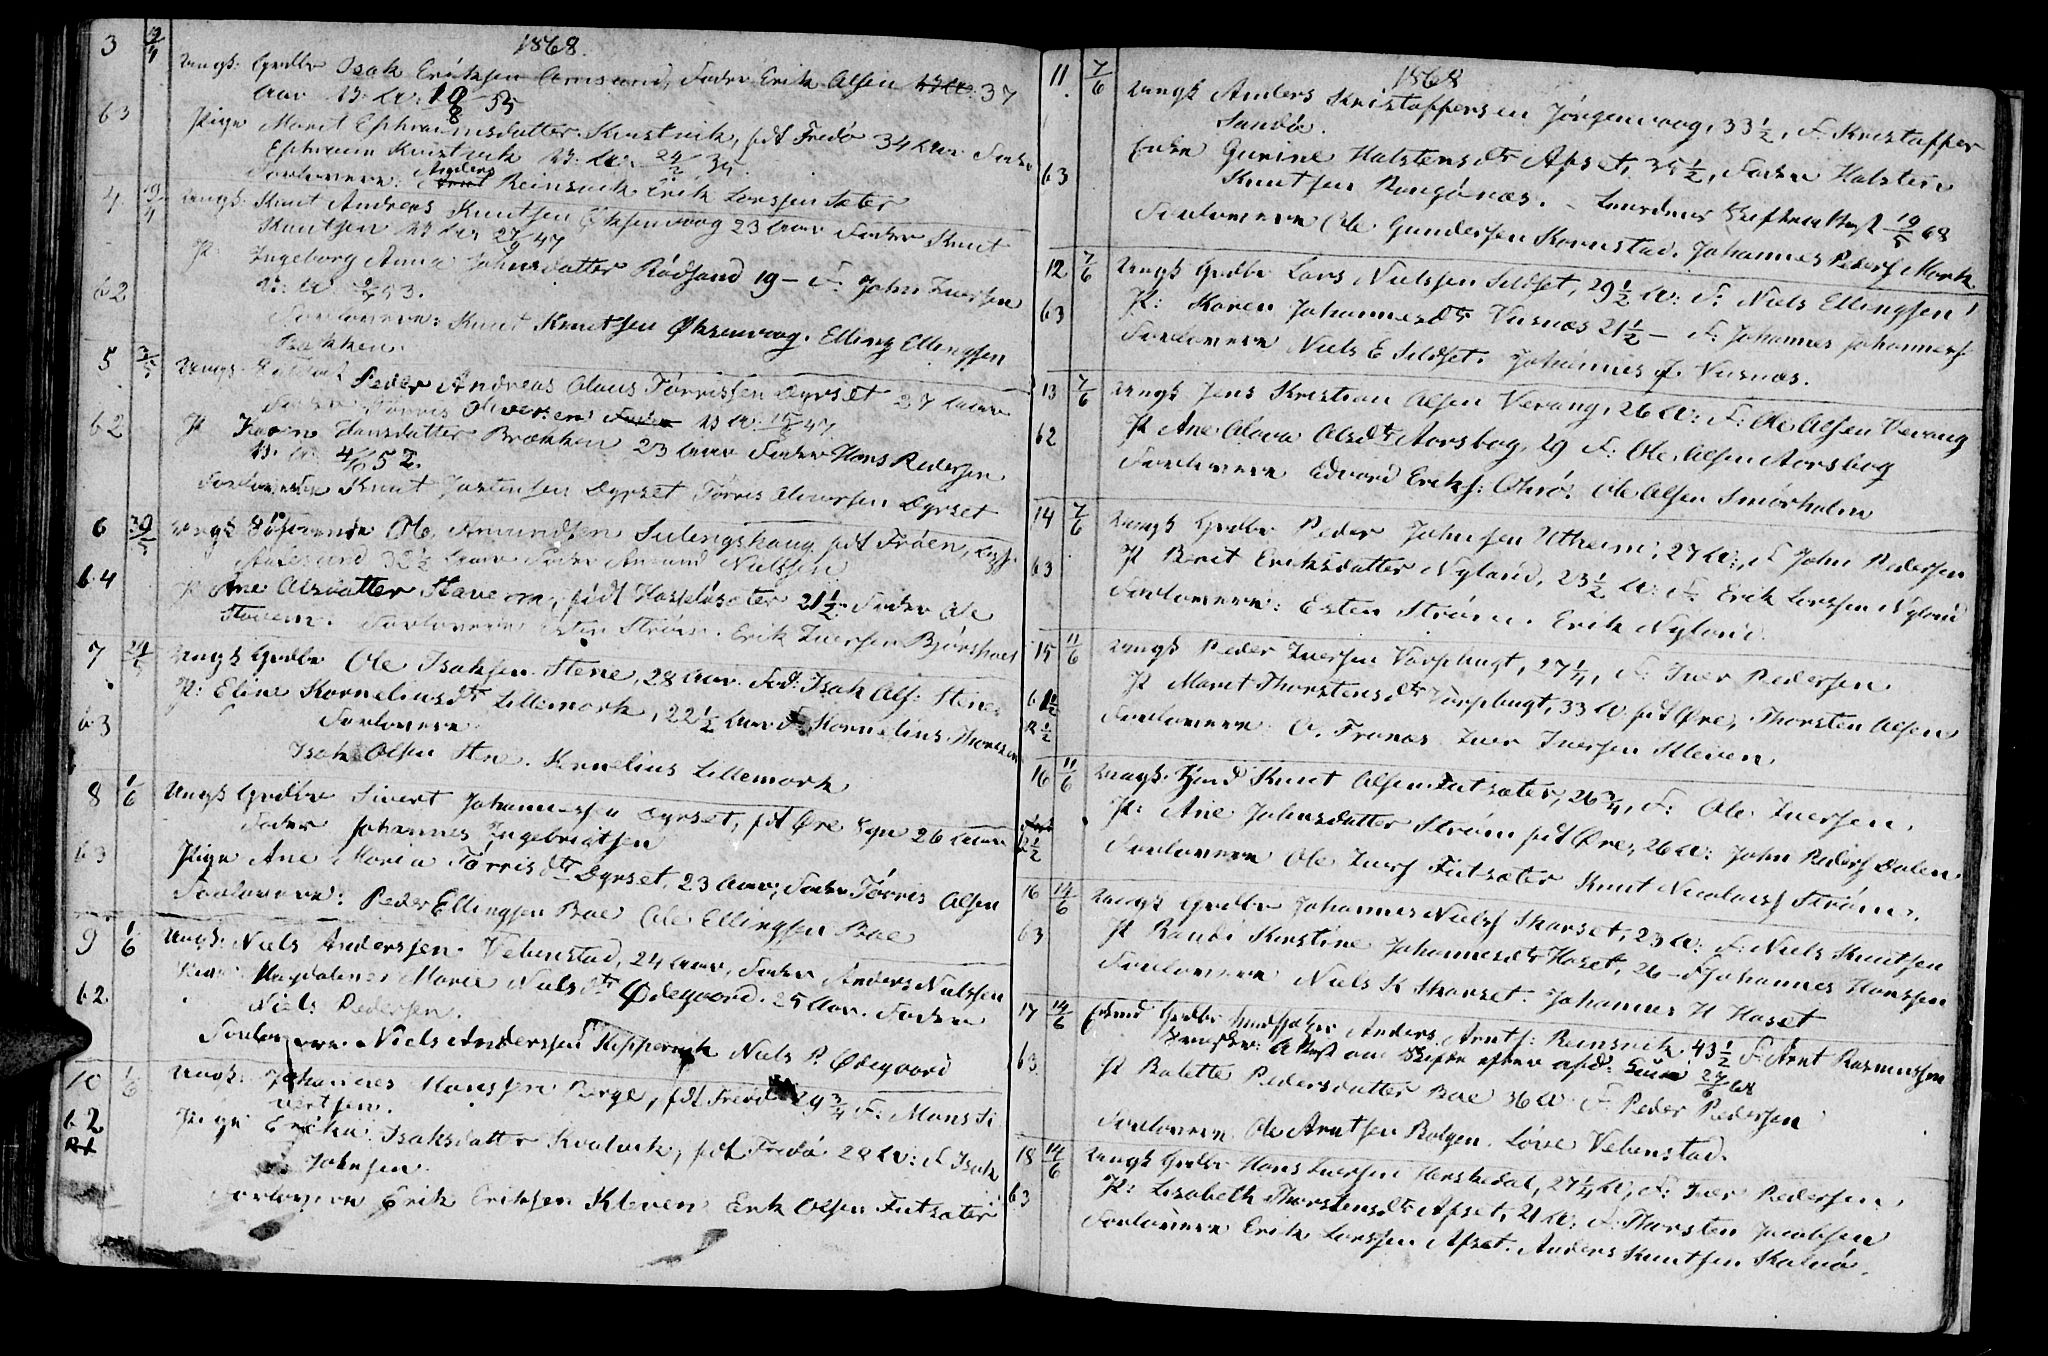 1868.
3 12/4 Ungk: Grdbr Isak Eriksen Arnsund, Fader Erik Olsen 37
Aar V: At: 10/8 33
63 Pige Marit Ephraimsdatter Knutvik, født Fredø 34 Aar Fader
Ephraim Knutvik V: At: 24/2 34.
Forlovere: Anders Reinsvik Erik Larssen Sæter
4 19/4 Ungk: Knut Andreas Knutsen Øksenvaag 23 Aar Fader Knut
Knutsen V: At: 27/9 47
P: Ingeborg Anna Johnsdatter Rødsand 19 – F: John Iversen
62 V: At: 53.
Forlovere: Knut Knutsen Øksenvaag. Elling Ellingsen
Bakken.
5 3/5 Ungk: Peder Andreas Olaus Tørrissen Dyrset 27 Aar
Fader Tørris Oliversen V: At: 47.
62 P Karen Hansdatter Brækken 23 Aar Fader Hans Pedersen
V: At: 4/ 52.
Forlovere Knut Jostensen Dyrset Tørris Oliversen Dyrset
6 30/5 Ungk Ole Amundsen Sulingshaug født Frøen,
Aalesund 32 1/2 Aar Fader Amund Nielssen
64 P Ane Olsdatter Stavem, født Haskelsæter 21 1/2 Fader Ole
Stavem. Forlovere Esten Strøm. Erik Iversen Bjørshael
7 24/5 Ungk Grdbr Ole Isaksen Stene, 28 Aar. Fad: Isak Ols: Stene
P: Eline Korneliusdtr Lillemork, 22 1/2 Aar F: Kornelius Thoresen
63 Forlovere
Isak Olsen Stene. Kornelius Lillemork
8 1/6 Ungk Grdbr Sivert Johannessen Dyrset, født Øre Sgn 26 Aar
Fader Johannes Ingebrigtsen
63 Pige Ane Maria Tørrisdtr Dyrset, 23 Aar, Fader Tørris Olsen
Forlovere: Peder Ellingsen Boe Ole Ellingsen Boe
9 1/6 Ungk: Niels Anderssen Vebenstad, 24 Aar, Fader Anders Nielssen
Pige Magdalene Marie Nielsdtr Ødegaard. 25 Aar. Fader
62 Niels Pedersen.
Forlovere. Niels Anderssen Kippervik Niels P. Ødegaard
10 1/6 Ungk: Johannes Monssen Berge, født Fredø 29 3/4 F: Mons Si
vertsen.
62 Pige Erika Isaksdatter Kvalvik, født Fredø 28 At: F Isak
Johnsen.
Forlovere Erik Eriksen Kleven Erik Olsen Futsæter
1868
11 7/6 Ungk Anders Kristoffersen Jørgenvaag, 33 1/2, F: Kristoffer
Sandø.
63 Enke Gurine Halstensdtr Afset, 35 1/2, Fader Halsten
Knutsen Rangønæs. – Lensmands Skifteattest 19/5 68
Forlovere Ole Gundersen Kornstad. Johannes Peders Mork
12 7/6 Ungk Grdbr Lars Nielssen Sildset, 29 1/2 At: F: Niels Ellingsen
63 P: Karen Johannesdtr Vusnæs 21 1/2 – F: Johannes Johanness
Forlovere Niels E Sildset. Johannes J. Vusnæs.
13 7/6 Ungk Jens Kristian Olsen Verang, 26 At: F: Ole Olsen Verang
62 P Ane Olava Olsdtr Aarsbog, 29 F: Ole Olsen Aarsbog
Forlovere Edvard Eriks: Othrø. Ole Olsen Smørholm
14 7/6 Ungk Grdbr Peder Johnsen Utheim, 27 At:, F John Pedersen
63 P Berit Eriksdatter Nyland, 23 1/2 At: F: Erik Larssen Nyland
Forlovere: Esten Strøm. Erik Nyland
15 11/6 Ungk Peder Iversen Varphugt, 27 1/4, F: Iver Pedersen.
61 1/2 P Marit Thorstensdtr Varphugt, 33 At født Øre, Thorsten Olsen
R 1/2 Forlovere O. Tranæs Iver Iversen Kleven
16 11/6 Ungk. Knut Olsen Futsæter, 26 3/4, F: Ole Iversen.
P: Ane Johnsdatter Strøm født Øre, 26 At: John Peders Dalen
R 1/2 Forlovere Ole Ivers Futsæter Knut Nicolais Strøm.
16 14/6 Ungk Grdbr Johannes Niels Skarset, 23 At: F: Niels Knutsen
63 P Randi Kirstine Johannesdtr Haset, 26 – F Johannes Hanssen
Forlovere Niels K Skarset. Johannes H Haset
17 14/6 Enkmd Grdbr Anders Arnts: Reinsvik, 43 1/2 F: Arnt Rasmussen
63 Attest om Skifte efter afd: 27/6 68
P Balette Pedersdatter Boe 36 At: F: Peder Pedersen
Forlovere. Ole Arntsen Bolgen. Løve Vebenstad.
18 14/6 Ungk Grdbr Hans Iversen Herskedal, 27 1/4 At, F: Iver Pedersen.
63 P: Lisabeth Thorstensdtr Afset, 21 At: F: Thorsten Jacobsen
Forlovere Erik Larssen Afset. Anders Knutsen Kalvø.